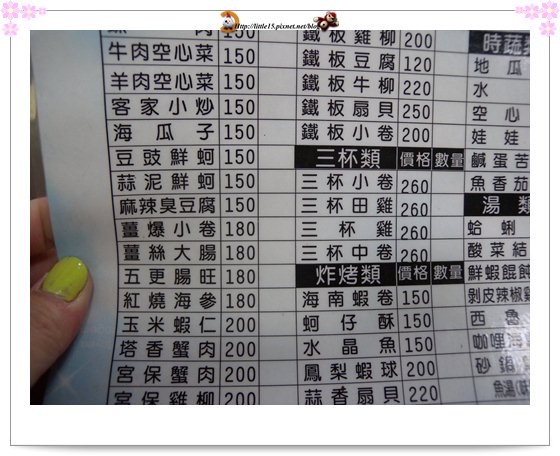 http://little15.pixnet.net/blog
肉
牛肉空心菜 150
羊肉空心菜 150
客家小炒 150
海瓜子 150
豆豉鮮蚵 150
蒜泥鮮蚵 150
麻辣臭豆腐 150
薑爆小卷 180
薑絲大腸 180
五更腸旺 180
紅燒海參 180
玉米蝦仁 200
塔香蟹肉 200
宮保蟹肉 200
宮保雞柳 200
鐵板雞柳 200
鐵板豆腐 120
鐵板牛柳 220
鐵板扇貝 250
鐵板小卷 200
三杯類 價格 數量
三杯小卷 260
三杯田雞 260
三杯雞 260
三杯中卷 260
炸烤類 價格 數量
海南蝦卷 150
蚵仔酥 150
水晶魚 150
鳳梨蝦球 200
蒜香扇貝 220
時蔬
地瓜
水
空心
娃娃
鹹蛋苦
魚香茄
湯類
蛤蜊
酸菜結
鮮蝦餛飩
剝皮辣椒雞
西魯
咖哩海
砂鍋
魚湯